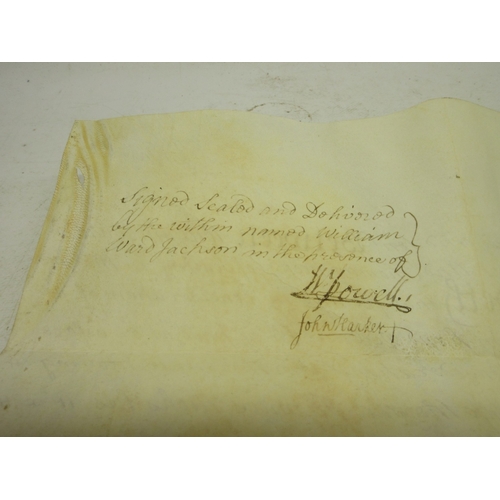 Signed Sealed and Delivered
by the within named William
Ward Jackson in the presence of
Wm Powell
John